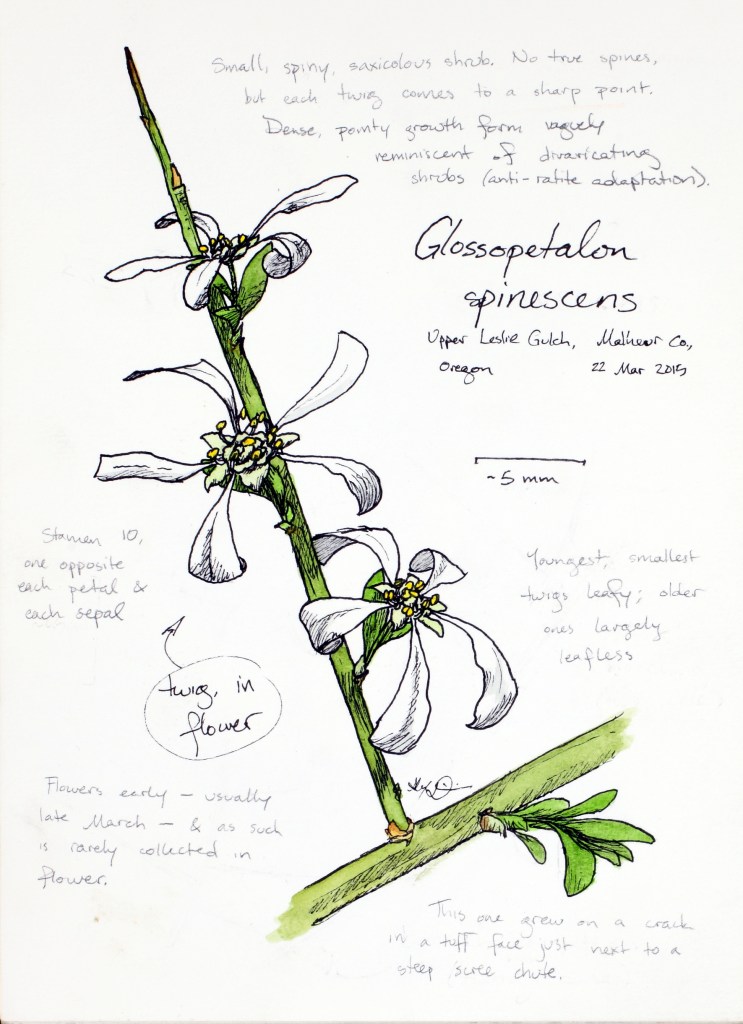 Small, spiny, saxicolous shrub. No true spines,
but each twig comes to a sharp point.
Dense, pointy growth form vaguely
reminiscent of divaricating
shrubs (anti-ratite adaptation).
Glossopetalon
spinescens
Upper Leslie Gulch, Malheur Co.,
Oregon 22 Mar 2015
~5 mm
Stamen 10,
one opposite
each petal &
each sepal
Youngest, smallest
twigs leafy; older
ones largely
leafless
twig, in
flower
Flowers early – usually
late March – & as such
is rarely collected in
flower.
This one grew on a crack
in a tuff face just next to a
steep scree chute.